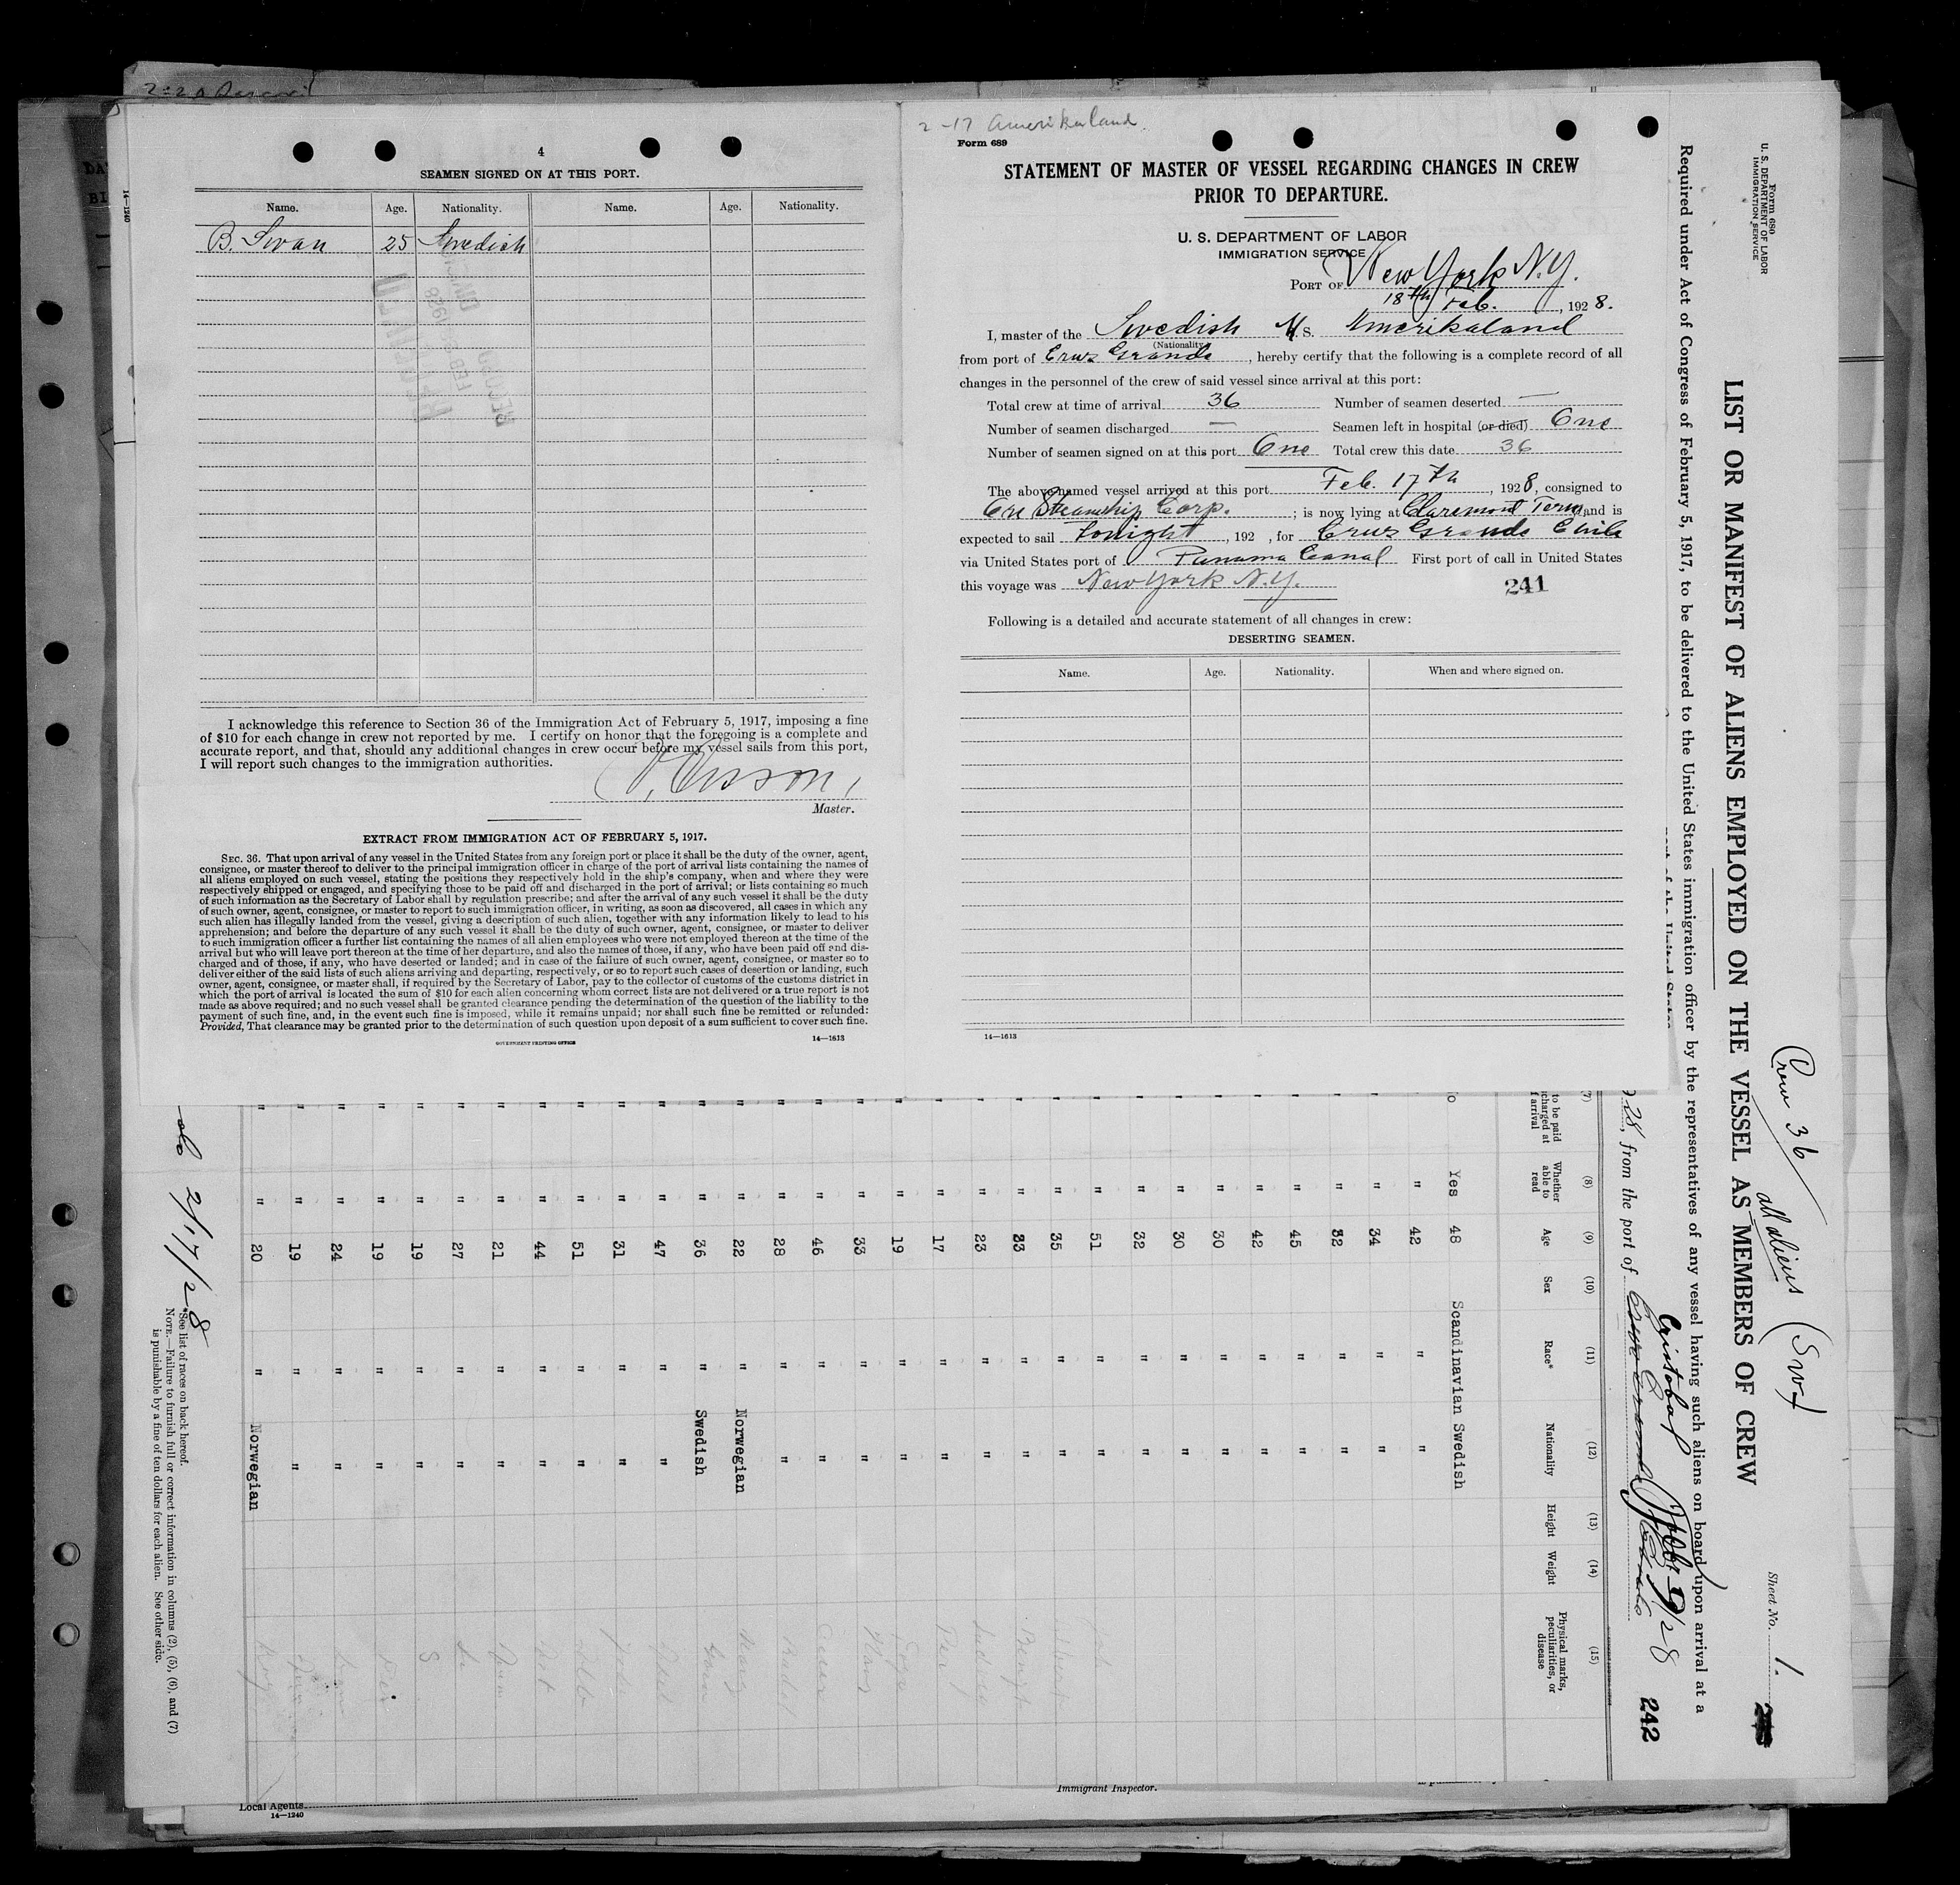 2-17 Amerikaland.
4
SEAMEN SIGNED ON AT THIS PORT.
Name. Age. Nationality. Name. Age. Nationality.
B. Swan 25 Swedish
I acknowledge this reference to Section 36 of the Immigration Act of February 5, 1917, imposing a fine
of $10 for each change in crew not reported by me. I certify on honor that the foregoing is a complete and
accurate report, and that, should any additional changes in crew occur before my vessel sails from this port,
I will report such changes to the immigration authorities.
Master.
EXTRACT FROM IMMIGRATION ACT OF FEBRUARY 5, 1917.
SEC. 36. That upon arrival of any vessel in the United States from any foreign port or place it shall be the duty of the owner, agent,
consignee, or master thereof to deliver to the principal immigration officer in charge of the port of arrival lists containing the names of
all aliens employed on such vessel, stating the positions they respectively hold in the ship's company, when and where they were
respectively shipped or engaged, and specifying those to be paid off and discharged in the port of arrival; or lists containing so much
of such information as the Secretary of Labor shall by regulation prescribe; and after the arrival of any such vessel it shall be the duty
of such owner, agent, consignee, or master to report to such immigration officer, in writing, as soon as discovered, all cases in which any
such alien has illegally landed from the vessel, giving a description of such alien, together with any information likely to lead to his
apprehension; and before the departure of any such vessel it shall be the duty of such owner, agent, consignee, or master to deliver
to such immigration officer a further list containing the names of all alien employees who were not employed thereon at the time of the
arrival but who will leave port thereon at the time of her departure, and also the names of those, if any, who have been paid off and dis-
charged and of those, if any, who have deserted or landed; and in case of the failure of such owner, agent, consignee, or master so to
deliver either of the said lists of such aliens arriving and departing, respectively, or so to report such cases of desertion or landing, such
owner, agent, consignee, or master shall, if required by the Secretary of Labor, pay to the collector of customs of the customs district in
which the port of arrival is located the sum of $10 for each alien concerning whom correct lists are not delivered or a true report is not
made as above required; and no such vessel shall be granted clearance pending the determination of the question of the liability to the
payment of such fine, and, in the event such fine is imposed, while it remains unpaid; nor shall such fine be remitted or refunded:
Provided, That clearance may be granted prior to the determination of such question upon deposit of a sum sufficient to cover such fine.
GOVERNMENT PRINTING OFFICE
14—1613
Form 689
STATEMENT OF MASTER OF VESSEL REGARDING CHANGES IN CREW
PRIOR TO DEPARTURE.
U. S. DEPARTMENT OF LABOR
IMMIGRATION SERVICE
PORT OF New York N.Y.
18th Feb. , 1928.
I, master of the Swedish M. S. Amerikaland
(Nationality)
from port of Cruz Grande , hereby certify that the following is a complete record of all
changes in the personnel of the crew of said vessel since arrival at this port:
Total crew at time of arrival 36 Number of seamen deserted —
Number of seamen discharged — Seamen left in hospital (or died) One
Number of seamen signed on at this port One Total crew this date 36
The above-named vessel arrived at this port Feb. 17th , 1928, consigned to
Ore Steamship Corp. ; is now lying at Claremont Term. and is
expected to sail tonight , 192 , for Cruz Grande Chile
via United States port of Panama Canal First port of call in United States
this voyage was New York N.Y.
241
Following is a detailed and accurate statement of all changes in crew:
DESERTING SEAMEN.
Name. Age. Nationality. When and where signed on.
14—1613
Form 680
U. S. DEPARTMENT OF LABOR
IMMIGRATION SERVICE
Crew 36 all aliens
Sheet No. 1.
LIST OR MANIFEST OF ALIENS EMPLOYED ON THE VESSEL AS MEMBERS OF CREW
Required under Act of Congress of February 5, 1917, to be delivered to the United States immigration officer by the representatives of any vessel having such aliens on board upon arrival at a
port of the United States
Cristobal
28, from the port of
242
(7) (8) (9) (10) (11) (12) (13) (14) (15)
to be paid
charged at
arrival
Whether able to read
Age
Sex
Race*
Nationality
Height
Weight
Physical marks, peculiarities, or disease
Yes 48 Scandinavian Swedish
" 42 " "
" 34 " "
" 32 " "
" 45 " "
" 42 " "
" 30 " "
" 30 " "
" 32 " "
" 51 " "
" 35 " "
" 33 " "
" 23 " "
" 17 " "
" 19 " "
" 33 " "
" 46 " "
" 28 " "
" 22 " Norwegian
" 36 " Swedish
" 47 " "
" 31 " "
" 51 " "
" 44 " "
" 21 " "
" 27 " "
" 19 " "
" 19 " "
" 24 " "
" 19 " "
" 20 " Norwegian
2/17/28
*See list of races on back hereof.
NOTE.—Failure to furnish full or correct information in columns (2), (5), (6), and (7)
is punishable by a fine of ten dollars for each alien. See other side.
Local Agents
14—1240
Immigrant Inspector.
14—1240